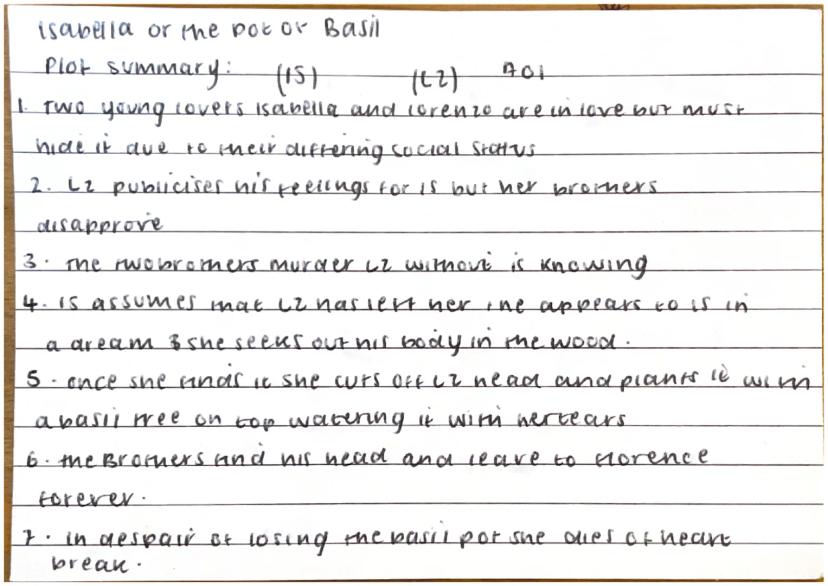 Isabella or the Pot of Basil
Plot summary: (IS) (LZ) AO1
1. Two young lovers Isabella and Lorenzo are in love but must
hide it due to their differing social status
2. LZ publicises his feelings for IS but her brothers
disapprove
3. The two brothers murder LZ without is knowing
4. IS assumes that LZ has left her, he appears to IS in
a dream & she seeks out his body in the wood.
5. once she finds it she cuts off LZ head and plants it with
a basil tree on top watering it with her tears
6. The Brothers find his head and leave to Florence
forever.
7. in despair of losing the basil pot she dies of heart
break.